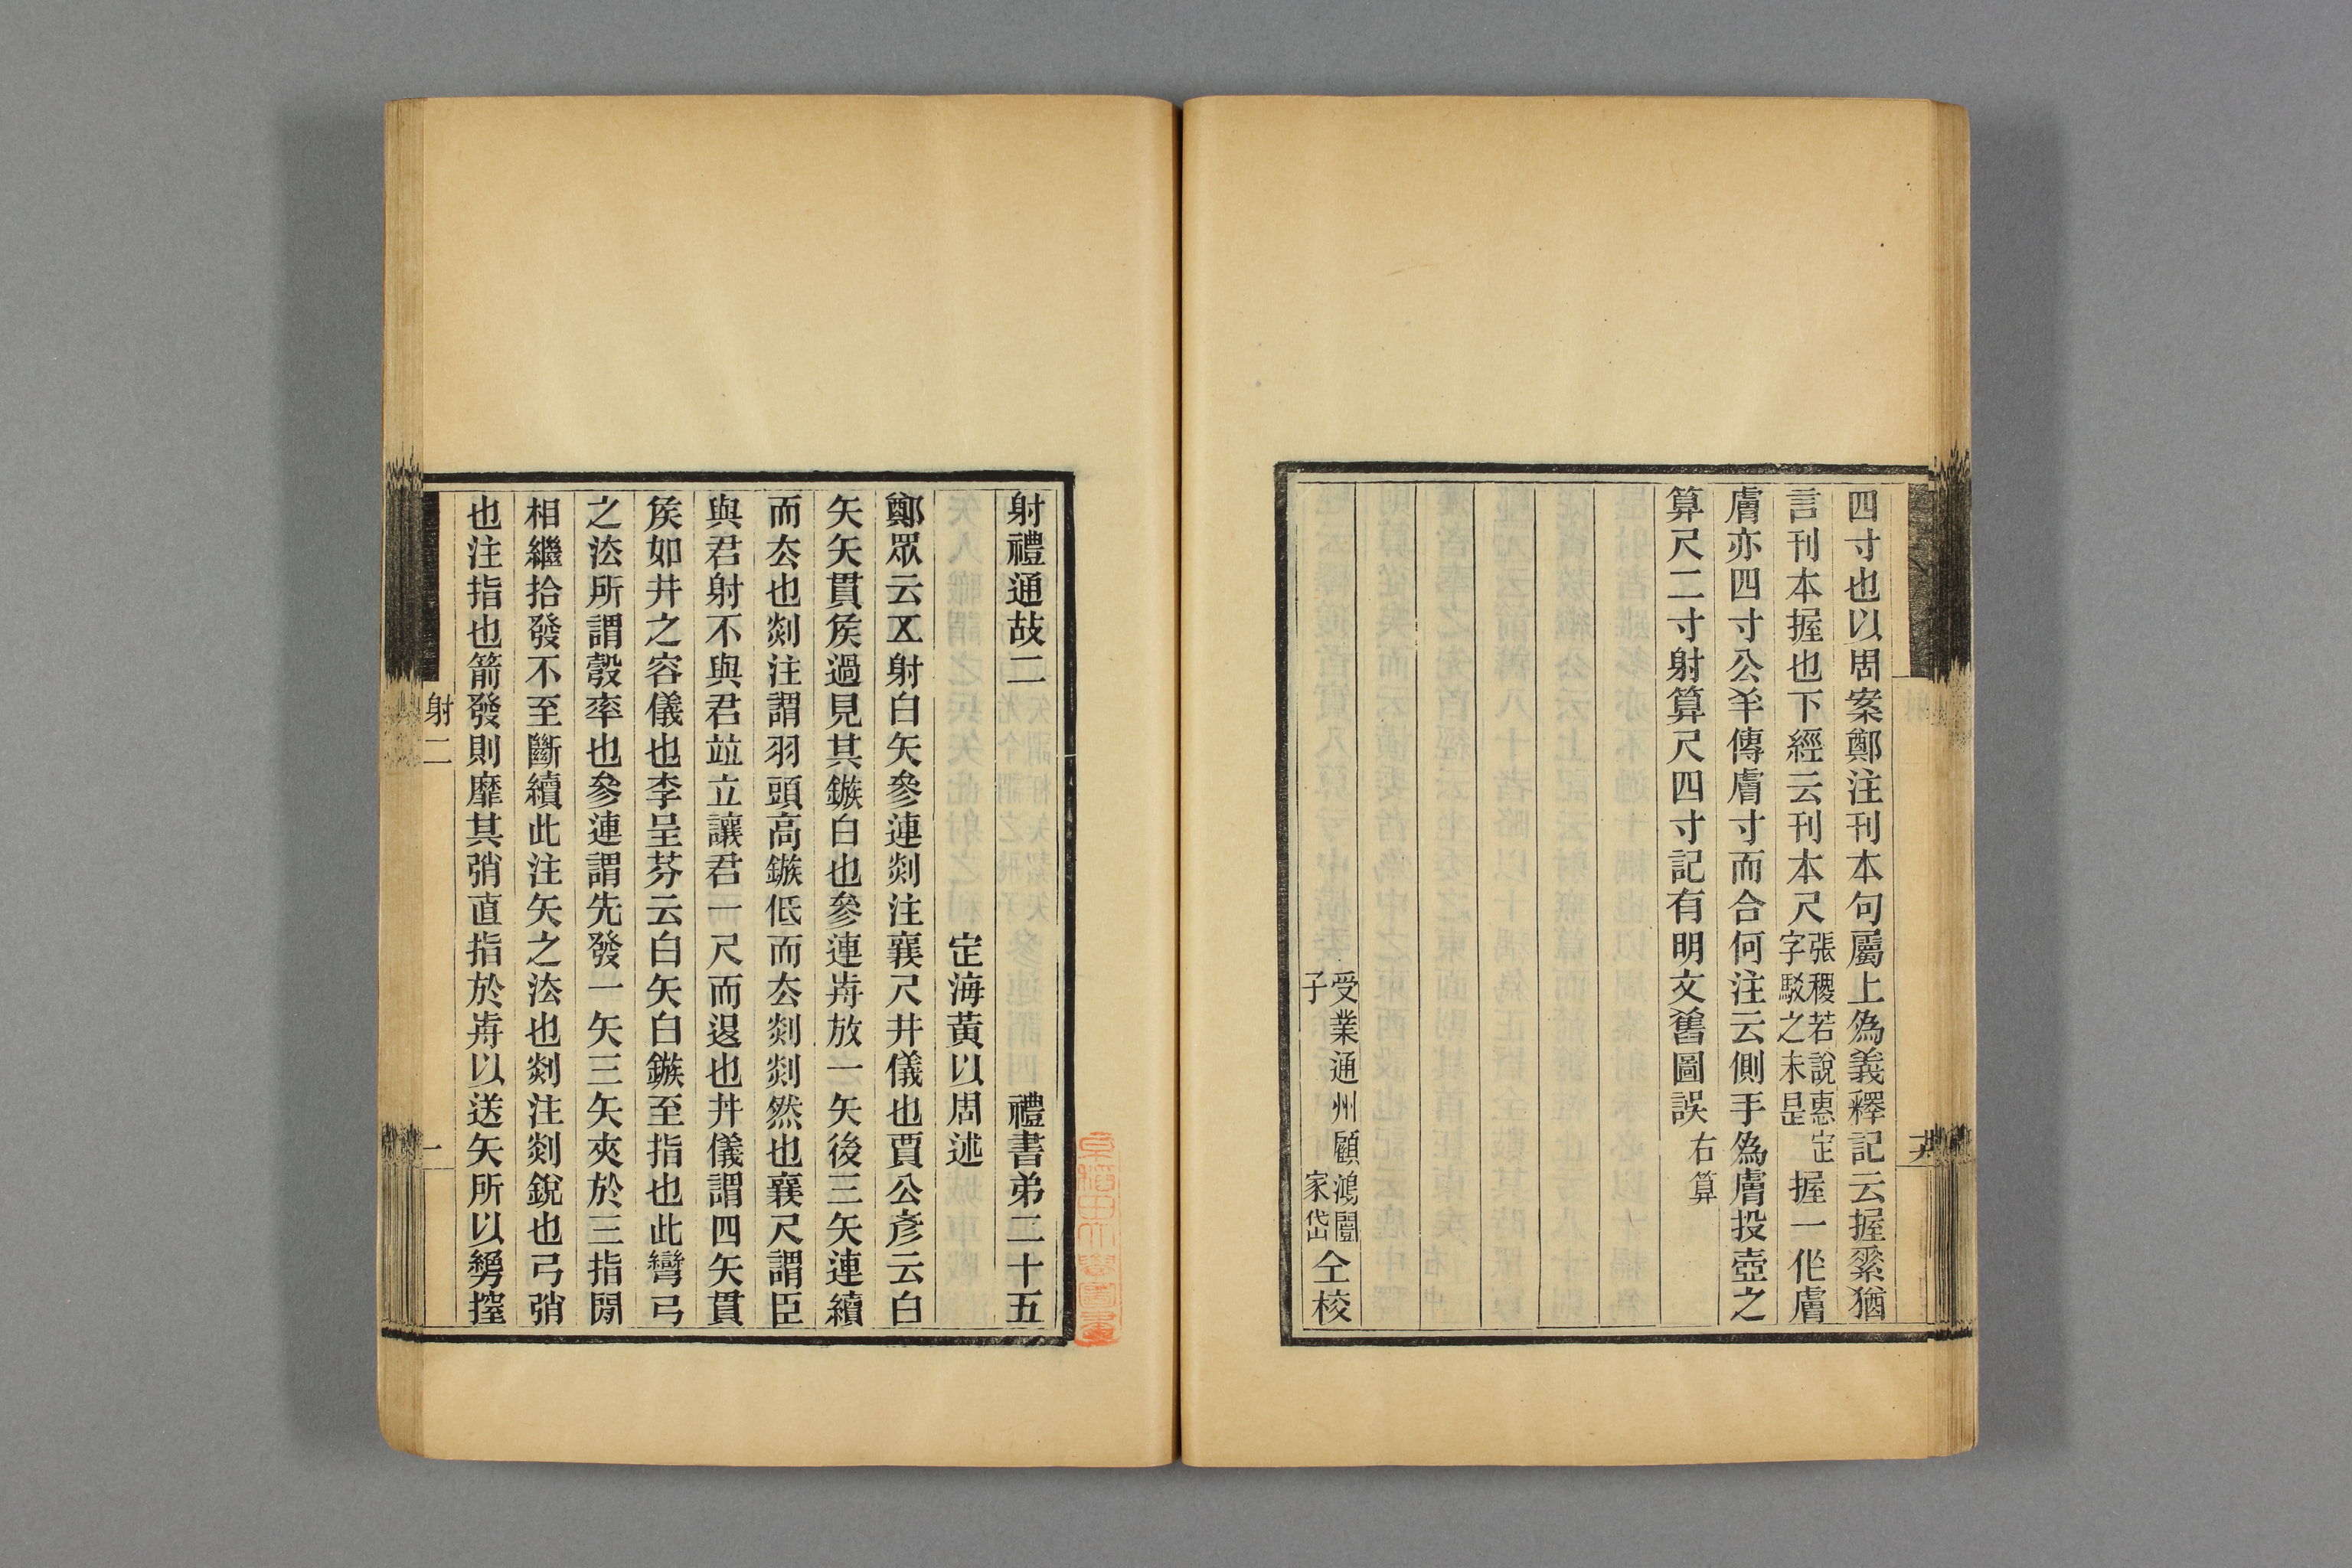 四寸也以周案鄭注刊本句屬上爲義釋記云握𥿊猶
言刊本握也下經云刊本尺張稷若說惠定字駁之未是握一作膚
膚亦四寸公羊傳膚寸而合何注云側手爲膚投壺之
算尺二寸射算尺四寸記有明文舊圖誤右算
受業通州顧鴻闓
子家岱
仝校
射禮通故二 禮書弟二十五
定海黃以周述
鄭眾云五射白矢參連剡注襄尺井儀也賈公彥云白
矢矢貫矦過見其鏃白也參連歬放一矢後三矢連續
而厺也剡注謂羽頭高鏃低而厺剡剡然也襄尺謂臣
與君射不與君竝立讓君一尺而退也丼儀謂四矢貫
矦如井之容儀也李呈芬云白矢白鏃至指也此彎弓
之㳒所謂彀率也參連謂先發一矢三矢夾於三指閒
相繼拾發不至斷續此注矢之㳒也剡注剡銳也弓弰
也注指也箭發則靡其弰直指於歬以送矢所以𢐧㩰
射二
一